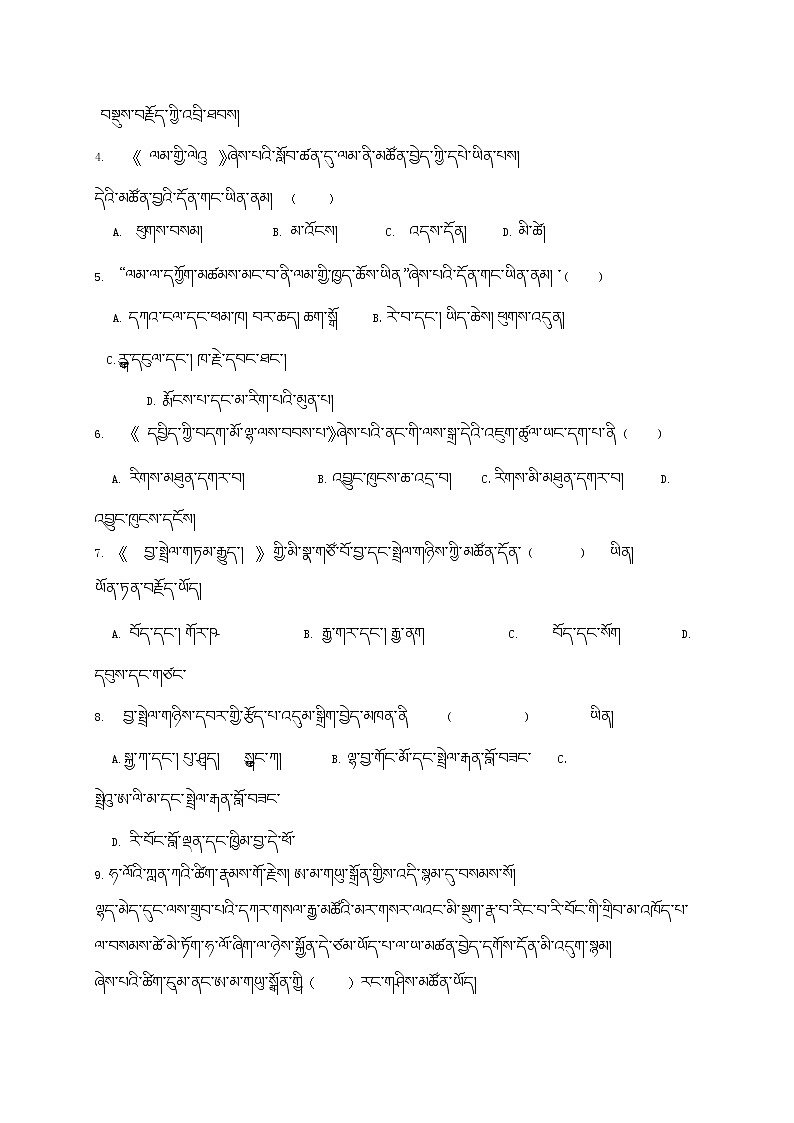 བསྡུས་བརྗོད་ཀྱི་འབྲི་ཐབས།
4. 《 ལམ་གྱི་ལེའུ 》ཞེས་པའི་སློབ་ཚན་དུ་ལམ་ནི་མཚོན་བྱེད་ཀྱི་དཔེ་ཡིན་པས།
དེའི་མཚོན་བྱའི་དོན་གང་ཡིན་ནམ། ( )
A. ཕུགས་བསམ། B. མ་འོངས། C. འདས་དོན། D. མི་ཚེ།
5. “ལམ་ལ་དཀྱོག་མཚམས་མང་བ་ནི་ལམ་གྱི་ཁྱད་ཆོས་ཡིན”ཞེས་པའི་དོན་གང་ཡིན་ནམ། ་( )
A. དཀའ་ངལ་དང་ཕམ་ཁ། བར་ཆད། ཆག་སྒོ། B. རེ་བ་དང་། ཡིད་ཆེས། ཕུགས་འདུན།
C. རྒྱུ་དངུལ་དང་། ཁ་རྗེ་དབང་ཐང་།
D. རྨོངས་པ་དང་མ་རིག་པའི་མུན་པ།
6. 《 དབྱིད་ཀྱི་བདག་མོ་ལྷ་ལས་བབས་པ་》ཞེས་པའི་ནང་གི་ལས་སྒྲ་དེའི་འཇུག་ཚུལ་ཡང་དག་པ་ནི ( )
A. རིགས་མཐུན་དགར་བ། B. འབྱུང་ཁུངས་ཆ་འདྲ་བ། C. རིགས་མི་མཐུན་དགར་བ། D.
འབྱུང་ཁུངས་དངོས།
7. 《 བྱ་སྤྲེལ་གཏམ་རྒྱུད་། 》 གྱི་མི་སྣ་གཙོ་བོ་བྱ་དང་སྤྲེལ་གཉིས་ཀྱི་མཚོན་དོན་ ( ) ཡིན།
ཡོན་ཏན་བརྗོད་ཡོད།
A. བོད་དང་། གོར་ཁ B. རྒྱ་གར་དང་། རྒྱ་ནག C. བོད་དང་སོག D.
དབུས་དང་གཙང་
8. བྱ་སྤྲེལ་གཉིས་དབར་གྱི་རྩོད་པ་འདུམ་སྒྲིག་བྱེད་མཁན་ནི ( ) ཡིན།
A. སྐྱ་ཀ་དང་། པུ་ཤུད། སྲུང་ཀ། B. ལྷ་བྱ་གོང་མོ་དང་སྤྲེལ་རྒན་བློ་བཟང་ C.
སྤྲེའུ་ཨ་ལི་མ་དང་སྤྲེལ་རྒན་བློ་བཟང་
D. རི་བོང་བློ་ལྡན་དང་ཁྱིམ་བྱ་དེ་ཕོ་
9. ཧ་ལོའི་ཀླན་ཀའི་ཚིག་རྣམས་གོ་རྗེས། ཨ་མ་གཡུ་སྒྲོན་གྱིས་འདི་སྙམ་དུ་བསམས་སོ།
ལྷད་མེད་དུང་ལས་གྲུབ་པའི་དཀར་གསལ་རྒྱ་མཚོའི་མར་གསར་ལའང་མི་སྡུག་རྣ་བ་རིང་བ་རི་བོང་གི་གྲིབ་མ་འཁོད་པ་
ལ་བསམས་ཚེ་མེ་ཏོག་ཧ་ལོ་ཞིག་ལ་ཉེས་སྐྱོན་དེ་ཙམ་ཡོད་པ་ལ་ཡ་མཚན་བྱེད་དགོས་དོན་མི་འདུག་སྙམ།
ཞེས་པའི་ཚིག་དུམ་ནང་ཨ་མ་གཡུ་སྒྲོན་གྱི ( ) རང་གཤིས་མཚོན་ཡོད།